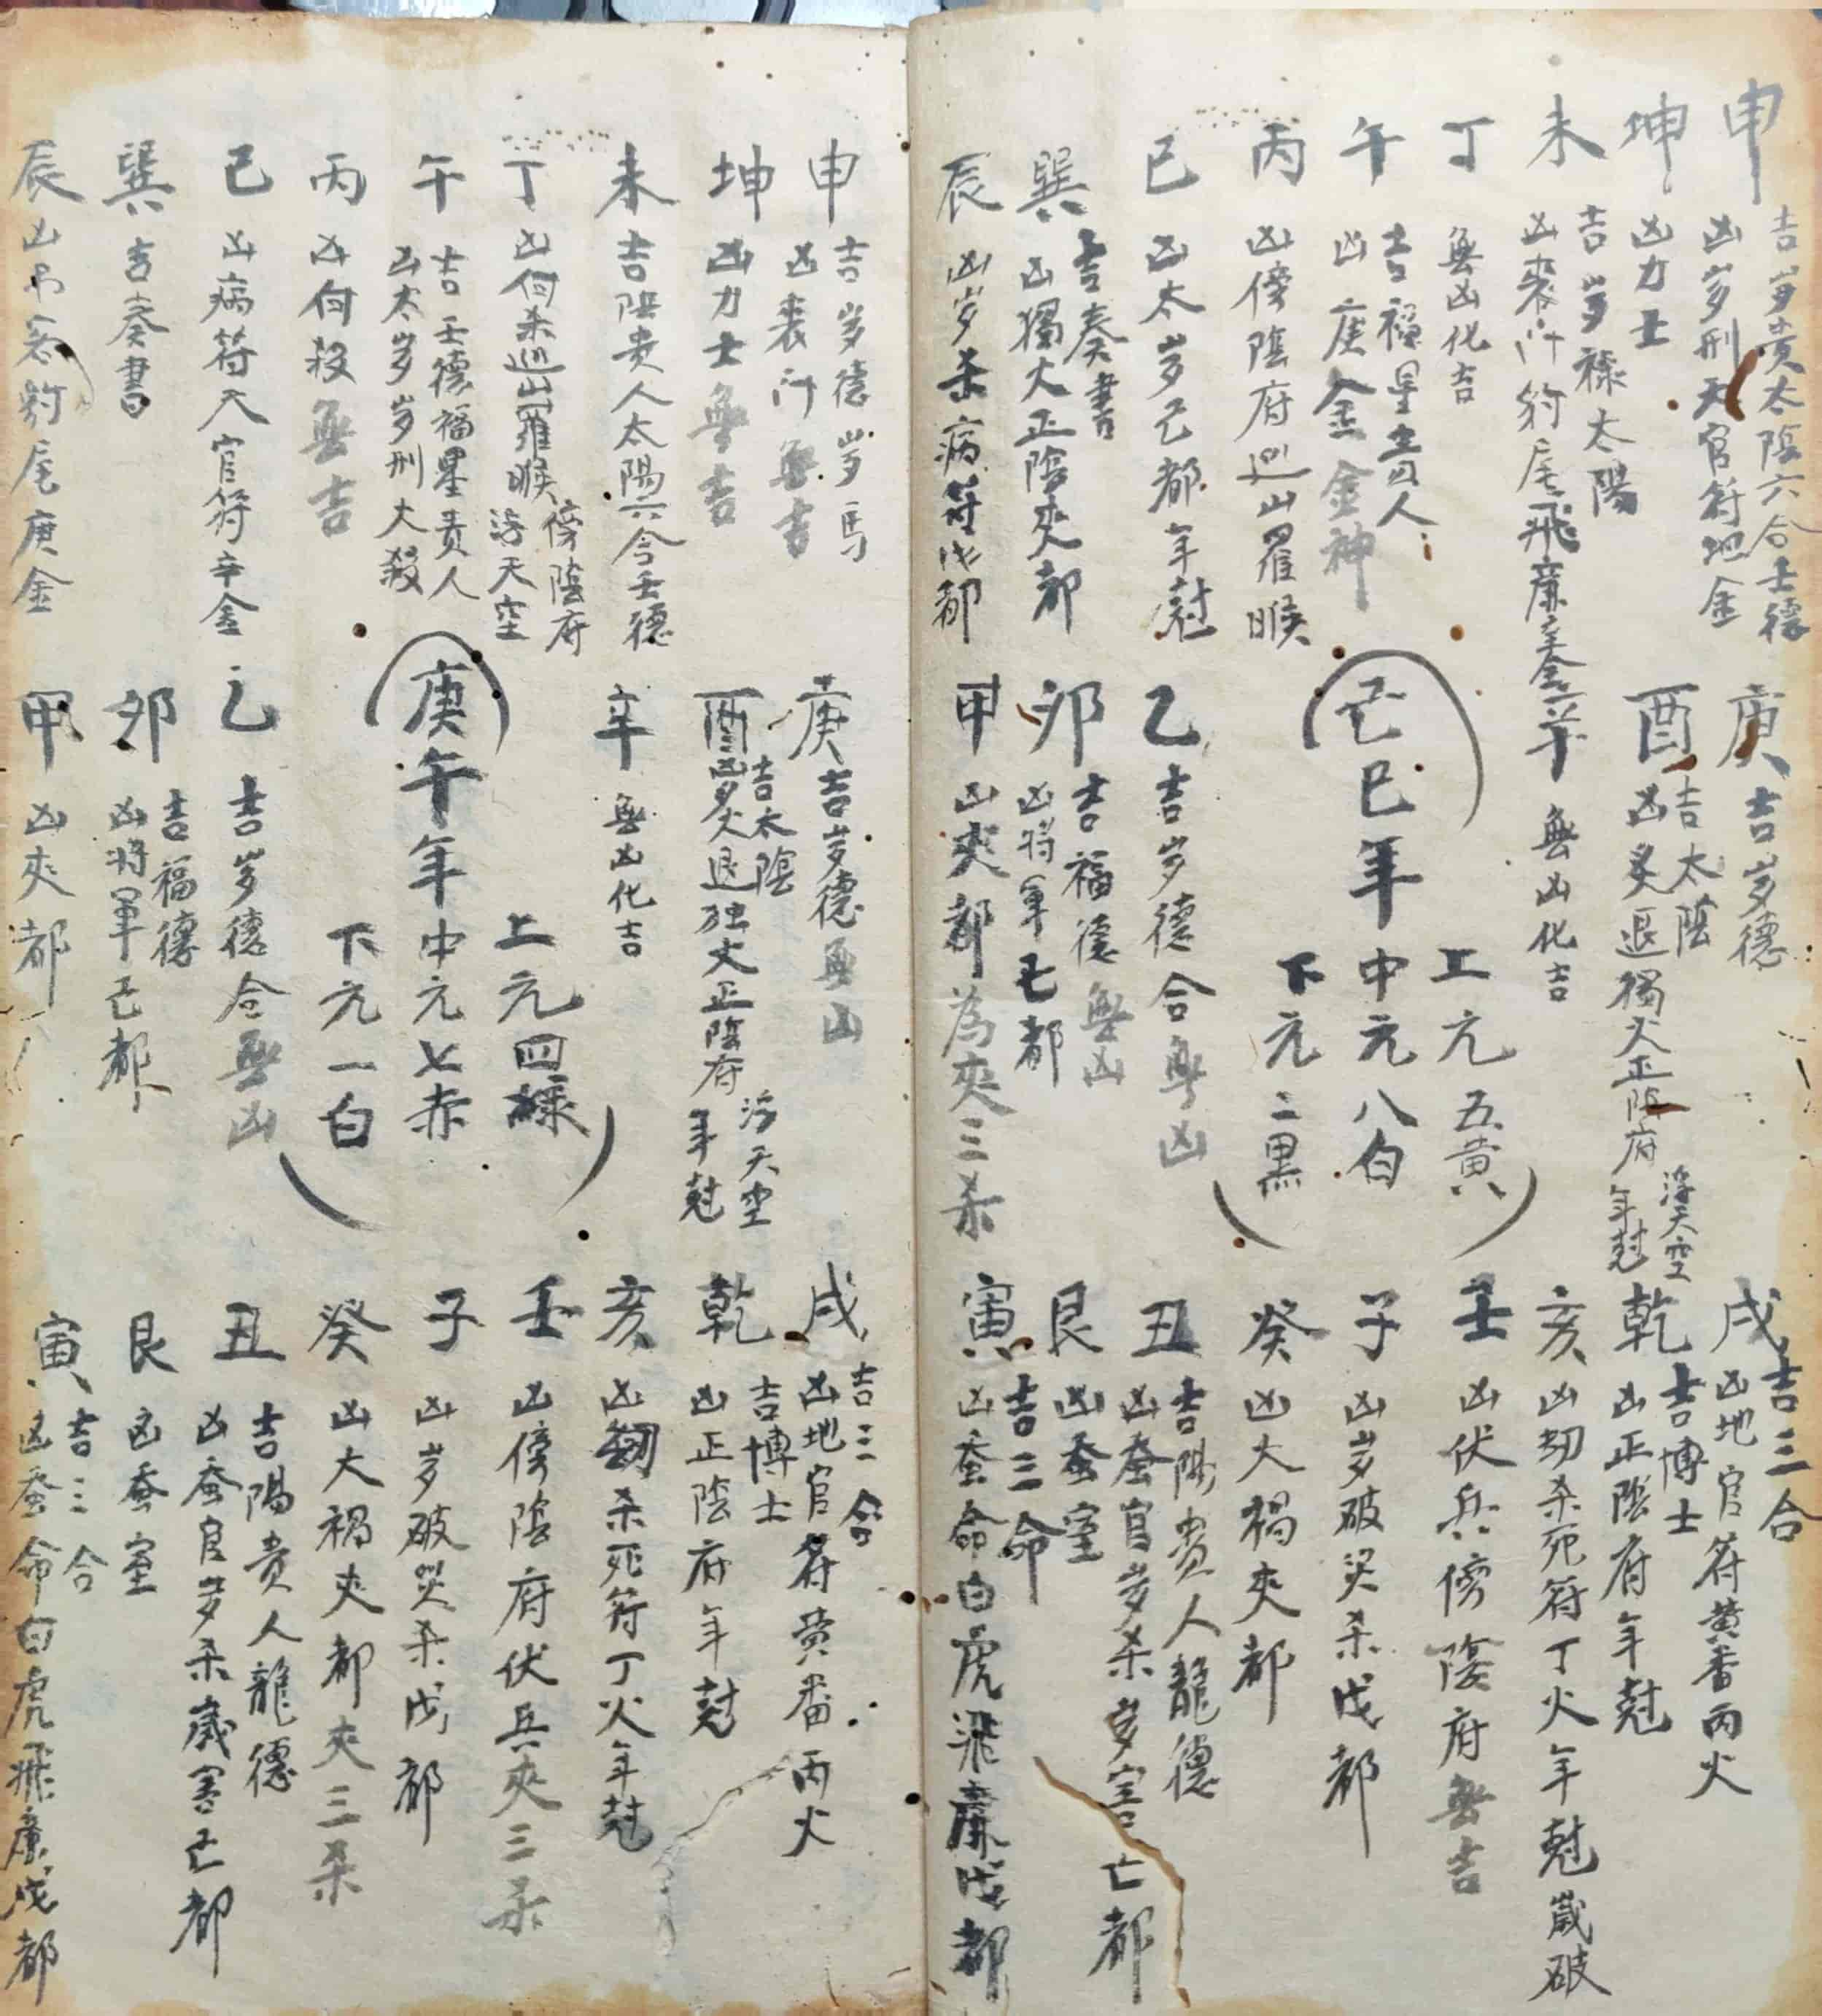 申
吉岁贵太陰六合壬德
凶岁刑天官符地金
坤
凶力士
未
吉岁禄太陽
凶丧门豹尾飛廉
丁
無凶化吉
午
吉福星貴人
凶庚金金神
丙
凶傍陰府巡山羅睺
巳
凶太岁己都年尅
巽
吉奏書
凶獨火正陰夾都
辰
凶岁杀病符戊都
庚
吉岁德
酉
吉太陰
凶炙退獨火正陰府
浮天空
年尅
辛
無凶化吉
己巳年
上元五黄
中元八白
下元二黑
乙
吉岁德合無凶
卯
吉福德無凶
凶将軍己都
甲
凶夾都為夾三杀
戌
吉三合
凶地官符黄番丙火
乾
吉博士
凶正陰府年尅
亥
凶刼杀死符丁火年尅歲破
壬
凶伏兵傍陰府無吉
子
凶岁破災杀戊都
癸
凶大禍夾都
丑
吉陽貴人龍德
凶蚕官岁杀岁害亡都
艮
凶蚕室
寅
吉三命
凶蚕命白虎飛廉戊都
申
吉岁德岁馬
凶丧门無吉
坤
凶力士無吉
未
吉陰贵人太陽六合壬德
丁
凶向杀巡山羅睺
傍陰府
浮天空
午
吉壬德福星贵人
凶太岁岁刑大殺
丙
凶向殺無吉
巳
凶病符天官符辛金
巽
吉奏書
辰
凶吊客豹尾庚金
庚
吉岁德無凶
酉
吉太陰
凶炙退独火正陰府
浮天空
年尅
辛
無凶化吉
庚午年
上元四禄
中元七赤
下元一白
乙
吉岁德合無凶
卯
吉福德
凶将軍己都
甲
凶夾都
戌
吉三合
凶地官符黄番丙火
乾
吉博士
凶正陰府年尅
亥
凶刼杀死符丁火年尅
壬
凶傍陰府伏兵夾三杀
子
凶岁破災杀戊都
癸
凶大禍夾都夾三杀
丑
吉陽贵人龍德
凶蚕官岁杀歲害亡都
艮
凶蚕室
寅
吉三合
凶蚕命白虎飛廉戊都